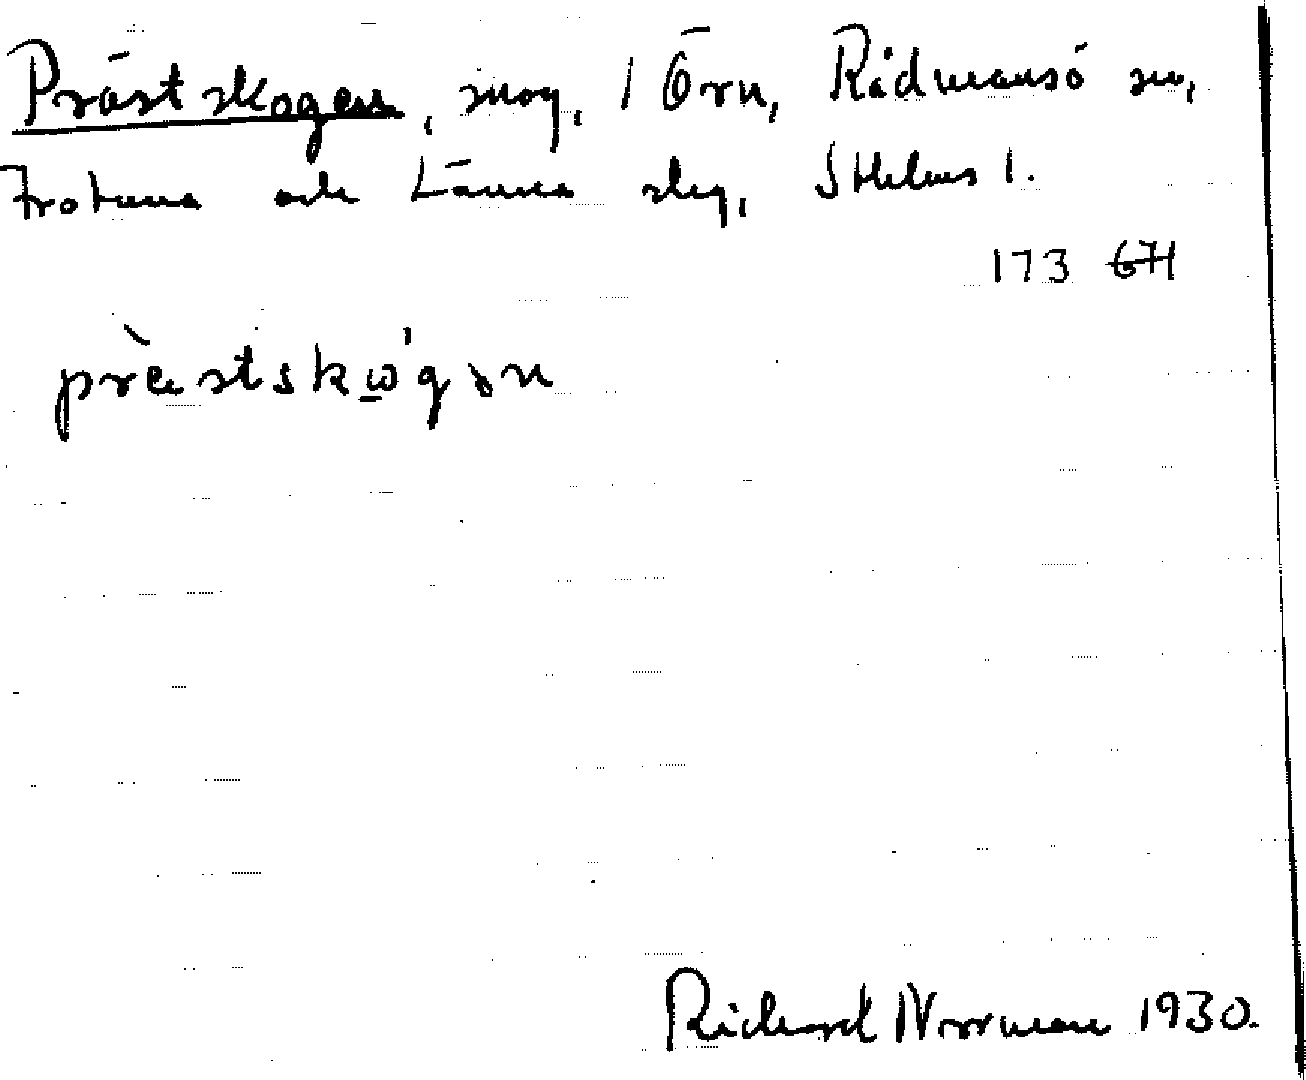 Prästskogen, skog, i Örn, Rådmansö sn,
Frötuna och Länna slg, Sthlms l.
173 671
præstskωgən
Richard Norrman 1930.